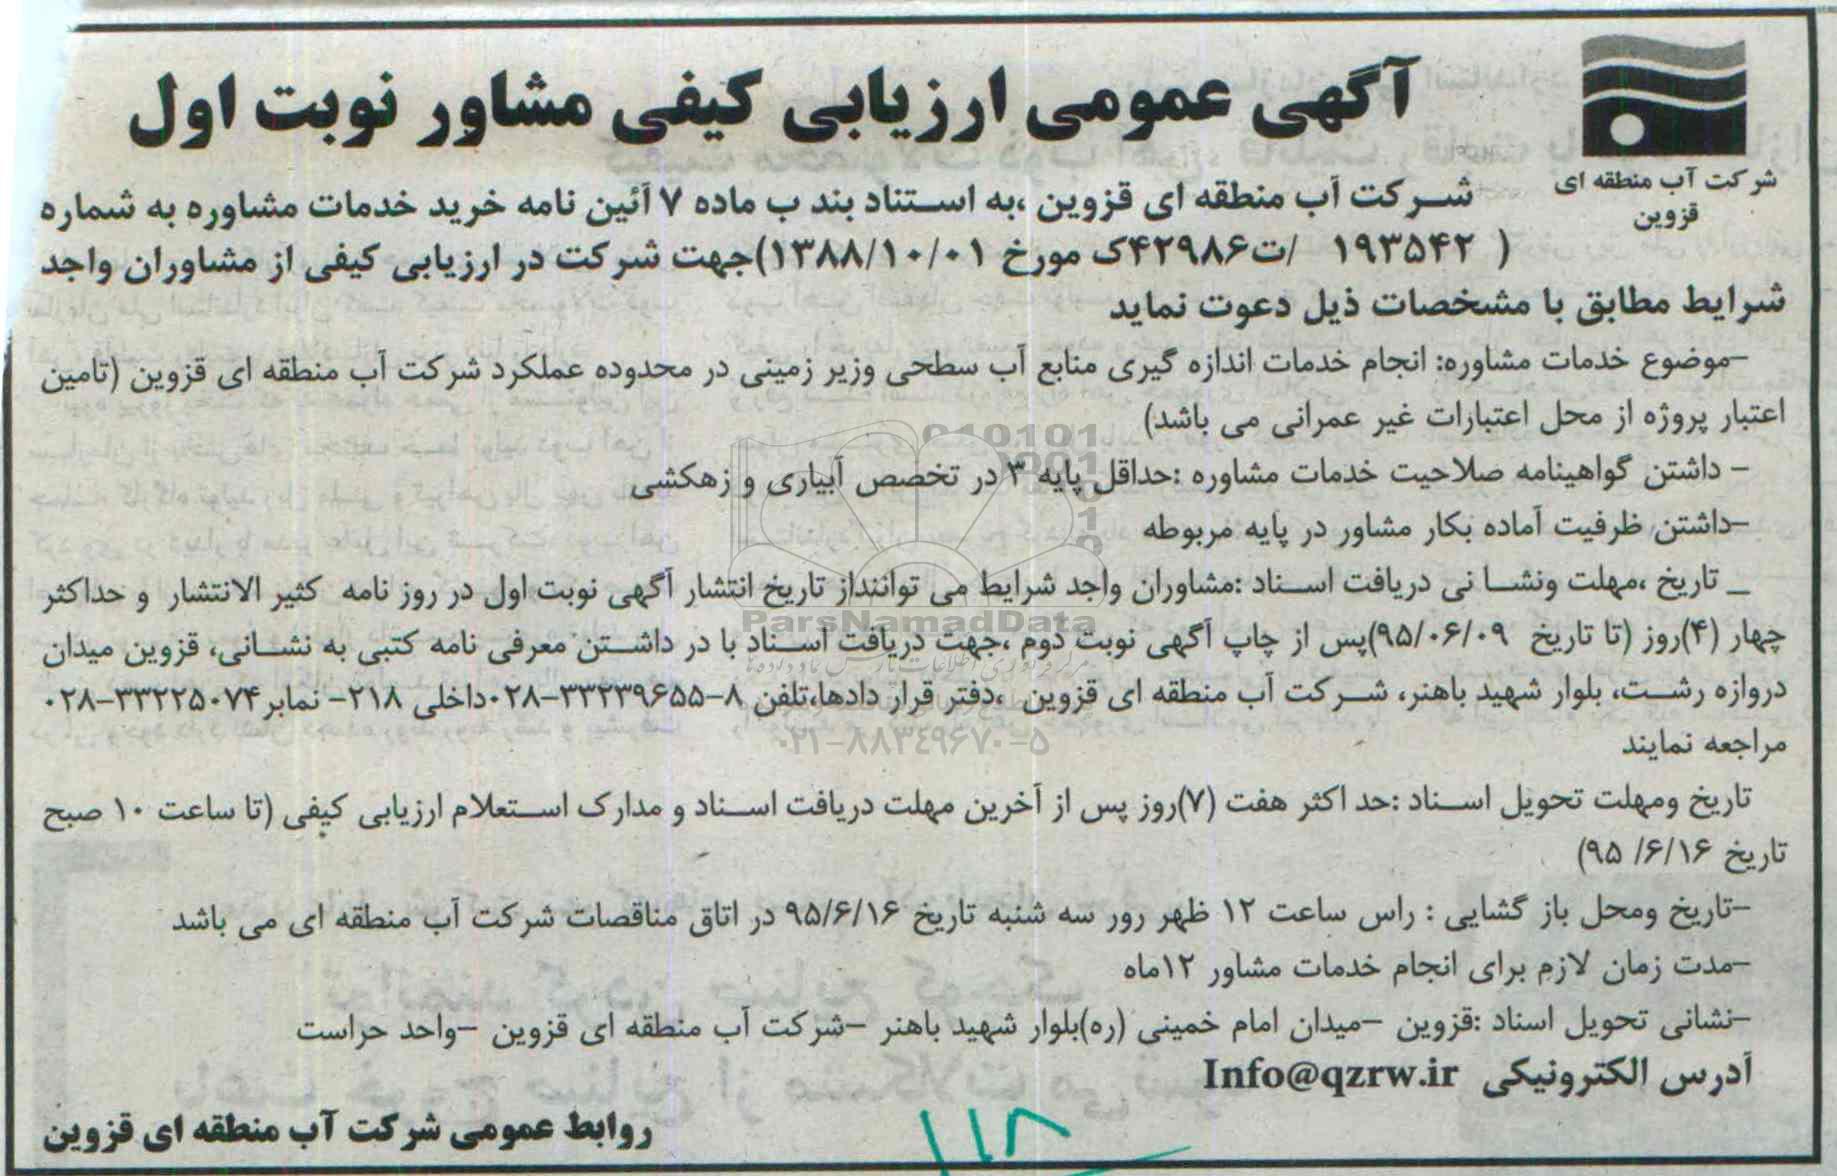 آگهی عمومی ارزیابی کیفی مشاور نوبت اول
شرکت آب منطقه ای
قزوین
شرکت آب منطقه ای قزوین ،به استناد بند ب ماده ۷ آئین نامه خرید خدمات مشاوره به شماره
( ۱۹۳۵۴۲ /ت۴۲۹۸۶ک مورخ ۱۳۸۸/۱۰/۰۱)جهت شرکت در ارزیابی کیفی از مشاوران واجد
شرایط مطابق با مشخصات ذیل دعوت نماید
-موضوع خدمات مشاوره: انجام خدمات اندازه گیری منابع آب سطحی وزیر زمینی در محدوده عملکرد شرکت آب منطقه ای قزوین (تامین
اعتبار پروژه از محل اعتبارات غیر عمرانی می باشد)
- داشتن گواهینامه صلاحیت خدمات مشاوره :حداقل پایه ۳ در تخصص آبیاری و زهکشی
-داشتن ظرفیت آماده بکار مشاور در پایه مربوطه
_ تاریخ ،مهلت ونشا نی دریافت اسناد :مشاوران واجد شرایط می توانندازتاریخ انتشار آگهی نوبت اول در روز نامه کثیر الانتشار و حداکثر
چهار (۴)روز (تا تاریخ ۹۵/۰۶/۰۹)پس از چاپ آگهی نوبت دوم ،جهت دریافت اسناد با در داشتن معرفی نامه کتبی به نشانی، قزوین میدان
دروازه رشت، بلوار شهید باهنر، شرکت آب منطقه ای قزوین ،دفتر قرار دادها،تلفن ۸-۳۳۲۳۹۶۵۵-۰۲۸داخلی ۲۱۸- نمابر۳۳۲۲۵۰۷۴-۰۲۸
مراجعه نمایند
تاریخ ومهلت تحویل اسناد :حد اکثر هفت (۷)روز پس از آخرین مهلت دریافت اسناد و مدارک استعلام ارزیابی کیفی (تا ساعت ۱۰ صبح
تاریخ ۶/۱۶/ ۹۵)
-تاریخ ومحل باز گشایی : راس ساعت ۱۲ ظهر رور سه شنبه تاریخ ۹۵/۶/۱۶ در اتاق مناقصات شرکت آب منطقه ای می باشد
-مدت زمان لازم برای انجام خدمات مشاور ۱۲ماه
-نشانی تحویل اسناد :قزوین -میدان امام خمینی (ره)بلوار شهید باهنر -شرکت آب منطقه ای قزوین -واحد حراست
آدرس الکترونیکی Info@qzrw.ir
روابط عمومی شرکت آب منطقه ای قزوین
ParsNamadData
۰۲۱-۸۸۳۴۹۶۷۰-۵